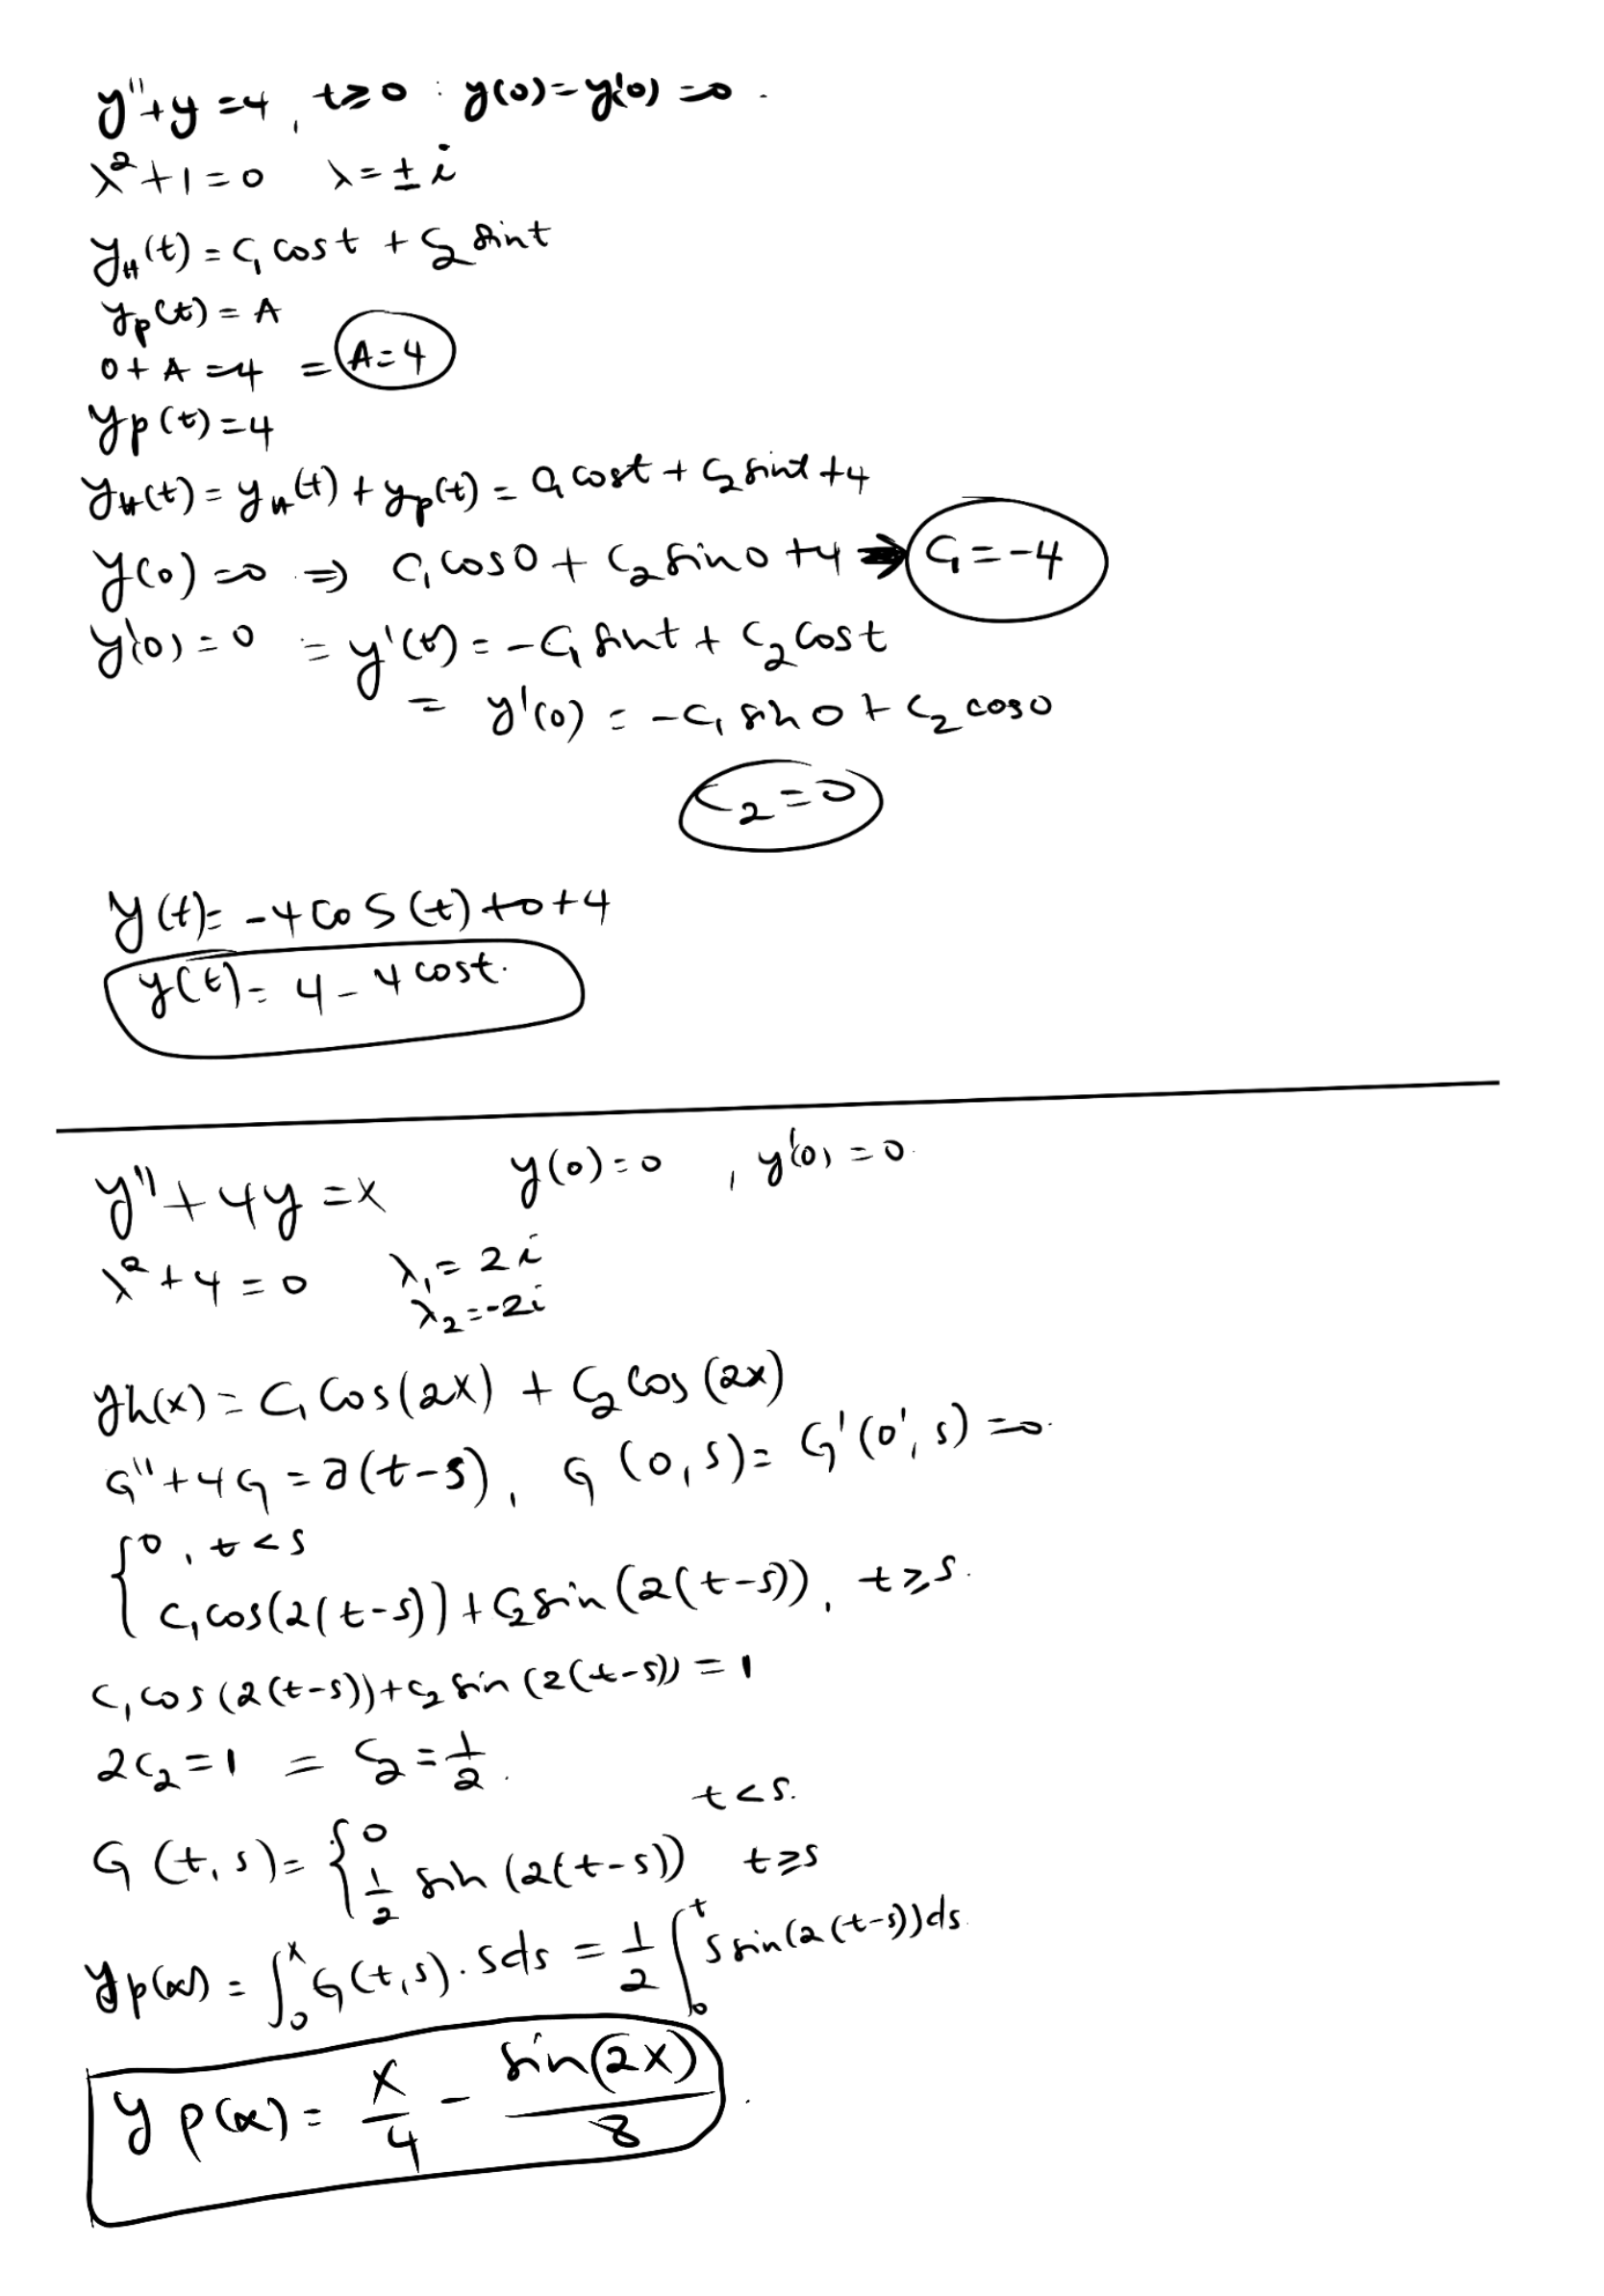 y''+y=4, t≥0 : y(0)=y'(0)=0.
λ²+1=0 λ=±i
y_H(t)=C₁cost+C₂sint
y_p(t)=A
0+A=4 = A=4
y_p(t)=4
y_H(t)=y_H(t)+y_p(t)=C₁cost+C₂sint+4
y(0)=0 ⇒ C₁cos0+C₂sin0+4 → C₁=-4
y'(0)=0 = y'(t)=-C₁sint+C₂cost
= y'(0)=-C₁sin0+C₂cos0
C₂=0
y(t)=-4cos(t)+0+4
y(t)=4-4cost.
y''+4y=x y(0)=0, y'(0)=0.
λ²+4=0 λ₁=2i
λ₂=-2i
yh(x)=C₁Cos(2x)+C₂Cos(2x)
G''+4G=∂(t-s), G(0,s)=G'(0',s)=0.
{0, t<s
C₁cos(2(t-s))+C₂sin(2(t-s)), t≥s.
C₁cos(2(t-s))+C₂sin(2(t-s))=1
2C₂=1 = C₂=1/2.
G(t,s)={0 t<s.
1/2 sin(2(t-s)) t≥s
yp(x)=∫₀ˣG(t,s)·sds=1/2∫₀ᵗs sin(2(t-s))ds.
yp(x)=x/4-sin(2x)/8.